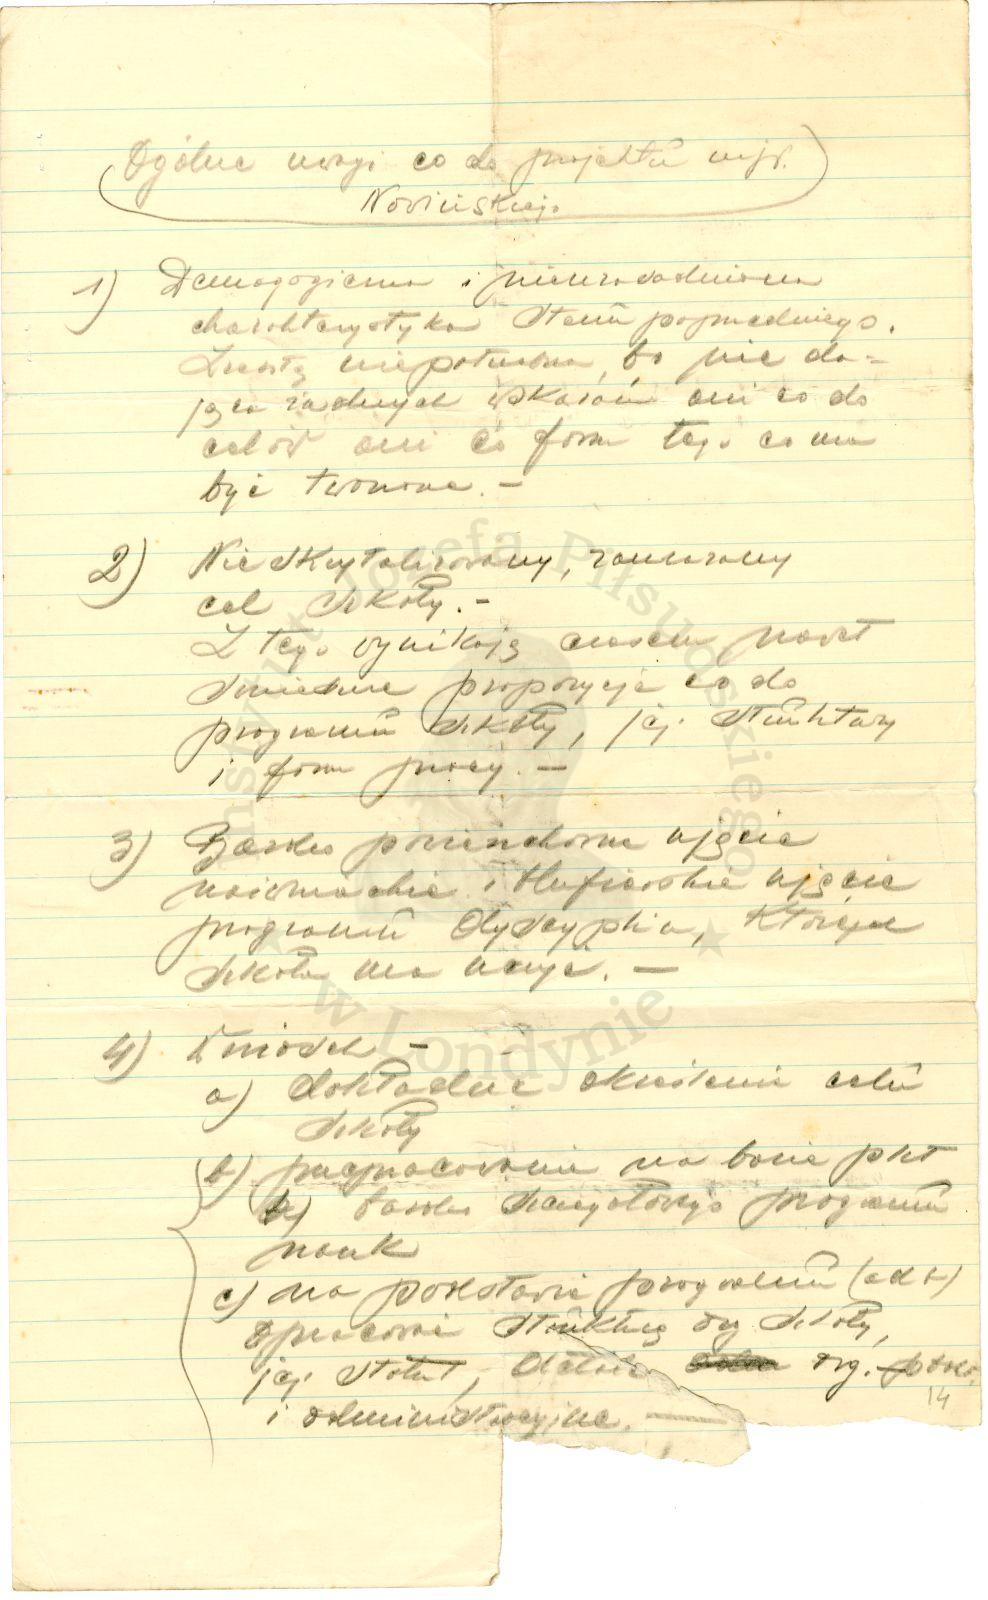 Ogólne uwagi co do projektu mjr.
Nowińskiego
1) Demagogiczna i nieuzasadniona
charakterystyka stanu poprzedniego.
Zresztą niepotrzebna, bo nie da-
jąca żadnych wskazań ani co do
celów ani co form tego co ma
być tworzone. –
2) Nie skrystalizowany, zamazany
cel szkoły. –
Z tego wynikają czasem nawet
śmieszne propozycje co do
programu szkoły, jej struktury
i form pracy. –
3) Bardzo ujęcie
i ujęcie
programu dyscyplin, których
szkoła ma uczyć. –
4) Wniosek –
a) dokładne określenie celu
szkoły
b) przepracowanie na bazie pkt
a) bardzo szczegółowego programu
nauk
c) na podstawie programu (ad b)
opracować strukturę org szkoły,
jej statut, org.
i administracyjne. –
14
Instytut Józefa Piłsudskiego
w Londynie